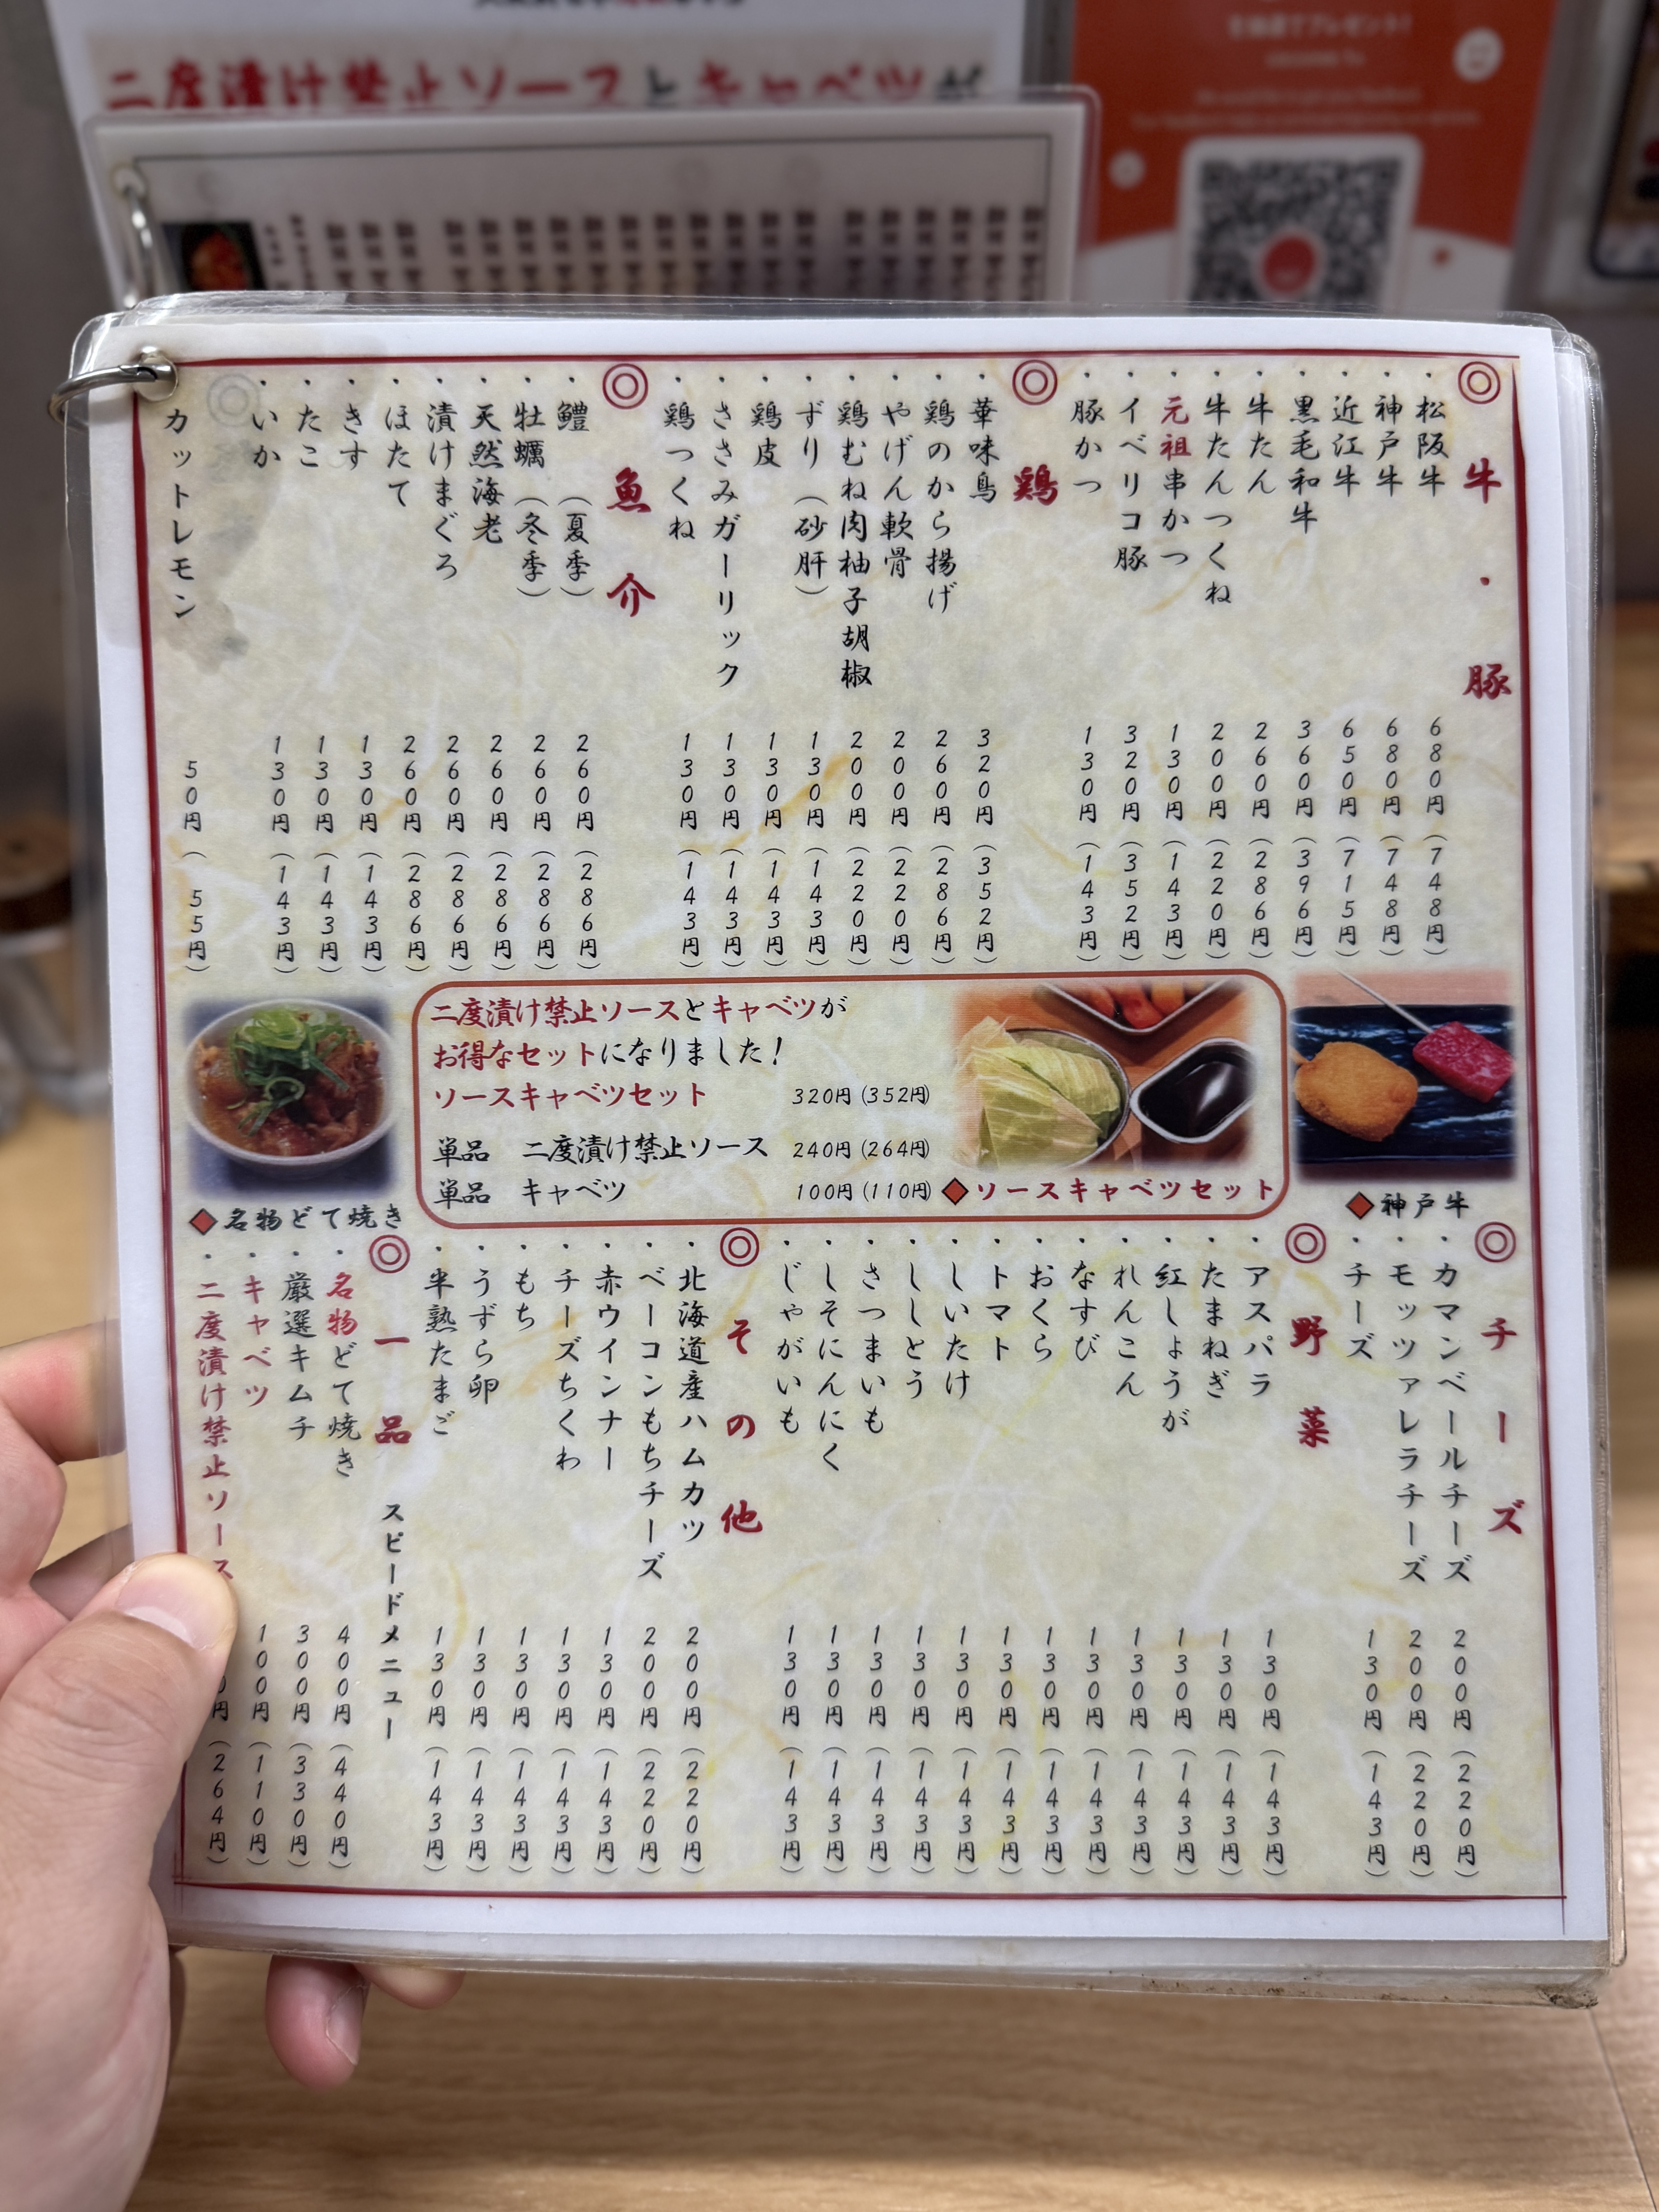 二度漬け禁止ソースとキャベツが
◎牛・豚
・松阪牛 680円(748円)
・神戸牛 680円(748円)
・近江牛 650円(715円)
・黒毛和牛 360円(396円)
・牛たん 260円(286円)
・牛たんつくね 200円(220円)
・元祖串かつ 130円(143円)
・イベリコ豚 320円(352円)
・豚かつ 130円(143円)
◎鶏
・華味鳥 320円(352円)
・鶏のから揚げ 260円(286円)
・やげん軟骨 200円(220円)
・鶏むね肉柚子胡椒 200円(220円)
・ずり(砂肝) 130円(143円)
・鶏皮 130円(143円)
・ささみガーリック 130円(143円)
・鶏つくね 130円(143円)
◎魚介
・鱧(夏季) 260円(286円)
・牡蠣(冬季) 260円(286円)
・天然海老 260円(286円)
・漬けまぐろ 260円(286円)
・ほたて 260円(286円)
・きす 130円(143円)
・たこ 130円(143円)
・いか 130円(143円)
カットレモン 50円(55円)
二度漬け禁止ソースとキャベツが
お得なセットになりました!
ソースキャベツセット 320円(352円)
単品 二度漬け禁止ソース 240円(264円)
単品 キャベツ 100円(110円)
◆ソースキャベツセット
◆神戸牛
◆名物どて焼き
◎チーズ
・カマンベールチーズ 200円(220円)
・モッツァレラチーズ 200円(220円)
・チーズ 130円(143円)
◎野菜
・アスパラ 130円(143円)
・たまねぎ 130円(143円)
・紅しょうが 130円(143円)
・れんこん 130円(143円)
・なすび 130円(143円)
・おくら 130円(143円)
・トマト 130円(143円)
・しいたけ 130円(143円)
・ししとう 130円(143円)
・さつまいも 130円(143円)
・しそにんにく 130円(143円)
・じゃがいも 130円(143円)
◎その他
・北海道産ハムカツ 200円(220円)
・ベーコンもちチーズ 200円(220円)
・赤ウインナー 130円(143円)
・チーズちくわ 130円(143円)
・もち 130円(143円)
・うずら卵 130円(143円)
・半熟たまご 130円(143円)
◎一品 スピードメニュー
・名物どて焼き 400円(440円)
・厳選キムチ 300円(330円)
・キャベツ 100円(110円)
・二度漬け禁止ソース 0円(264円)